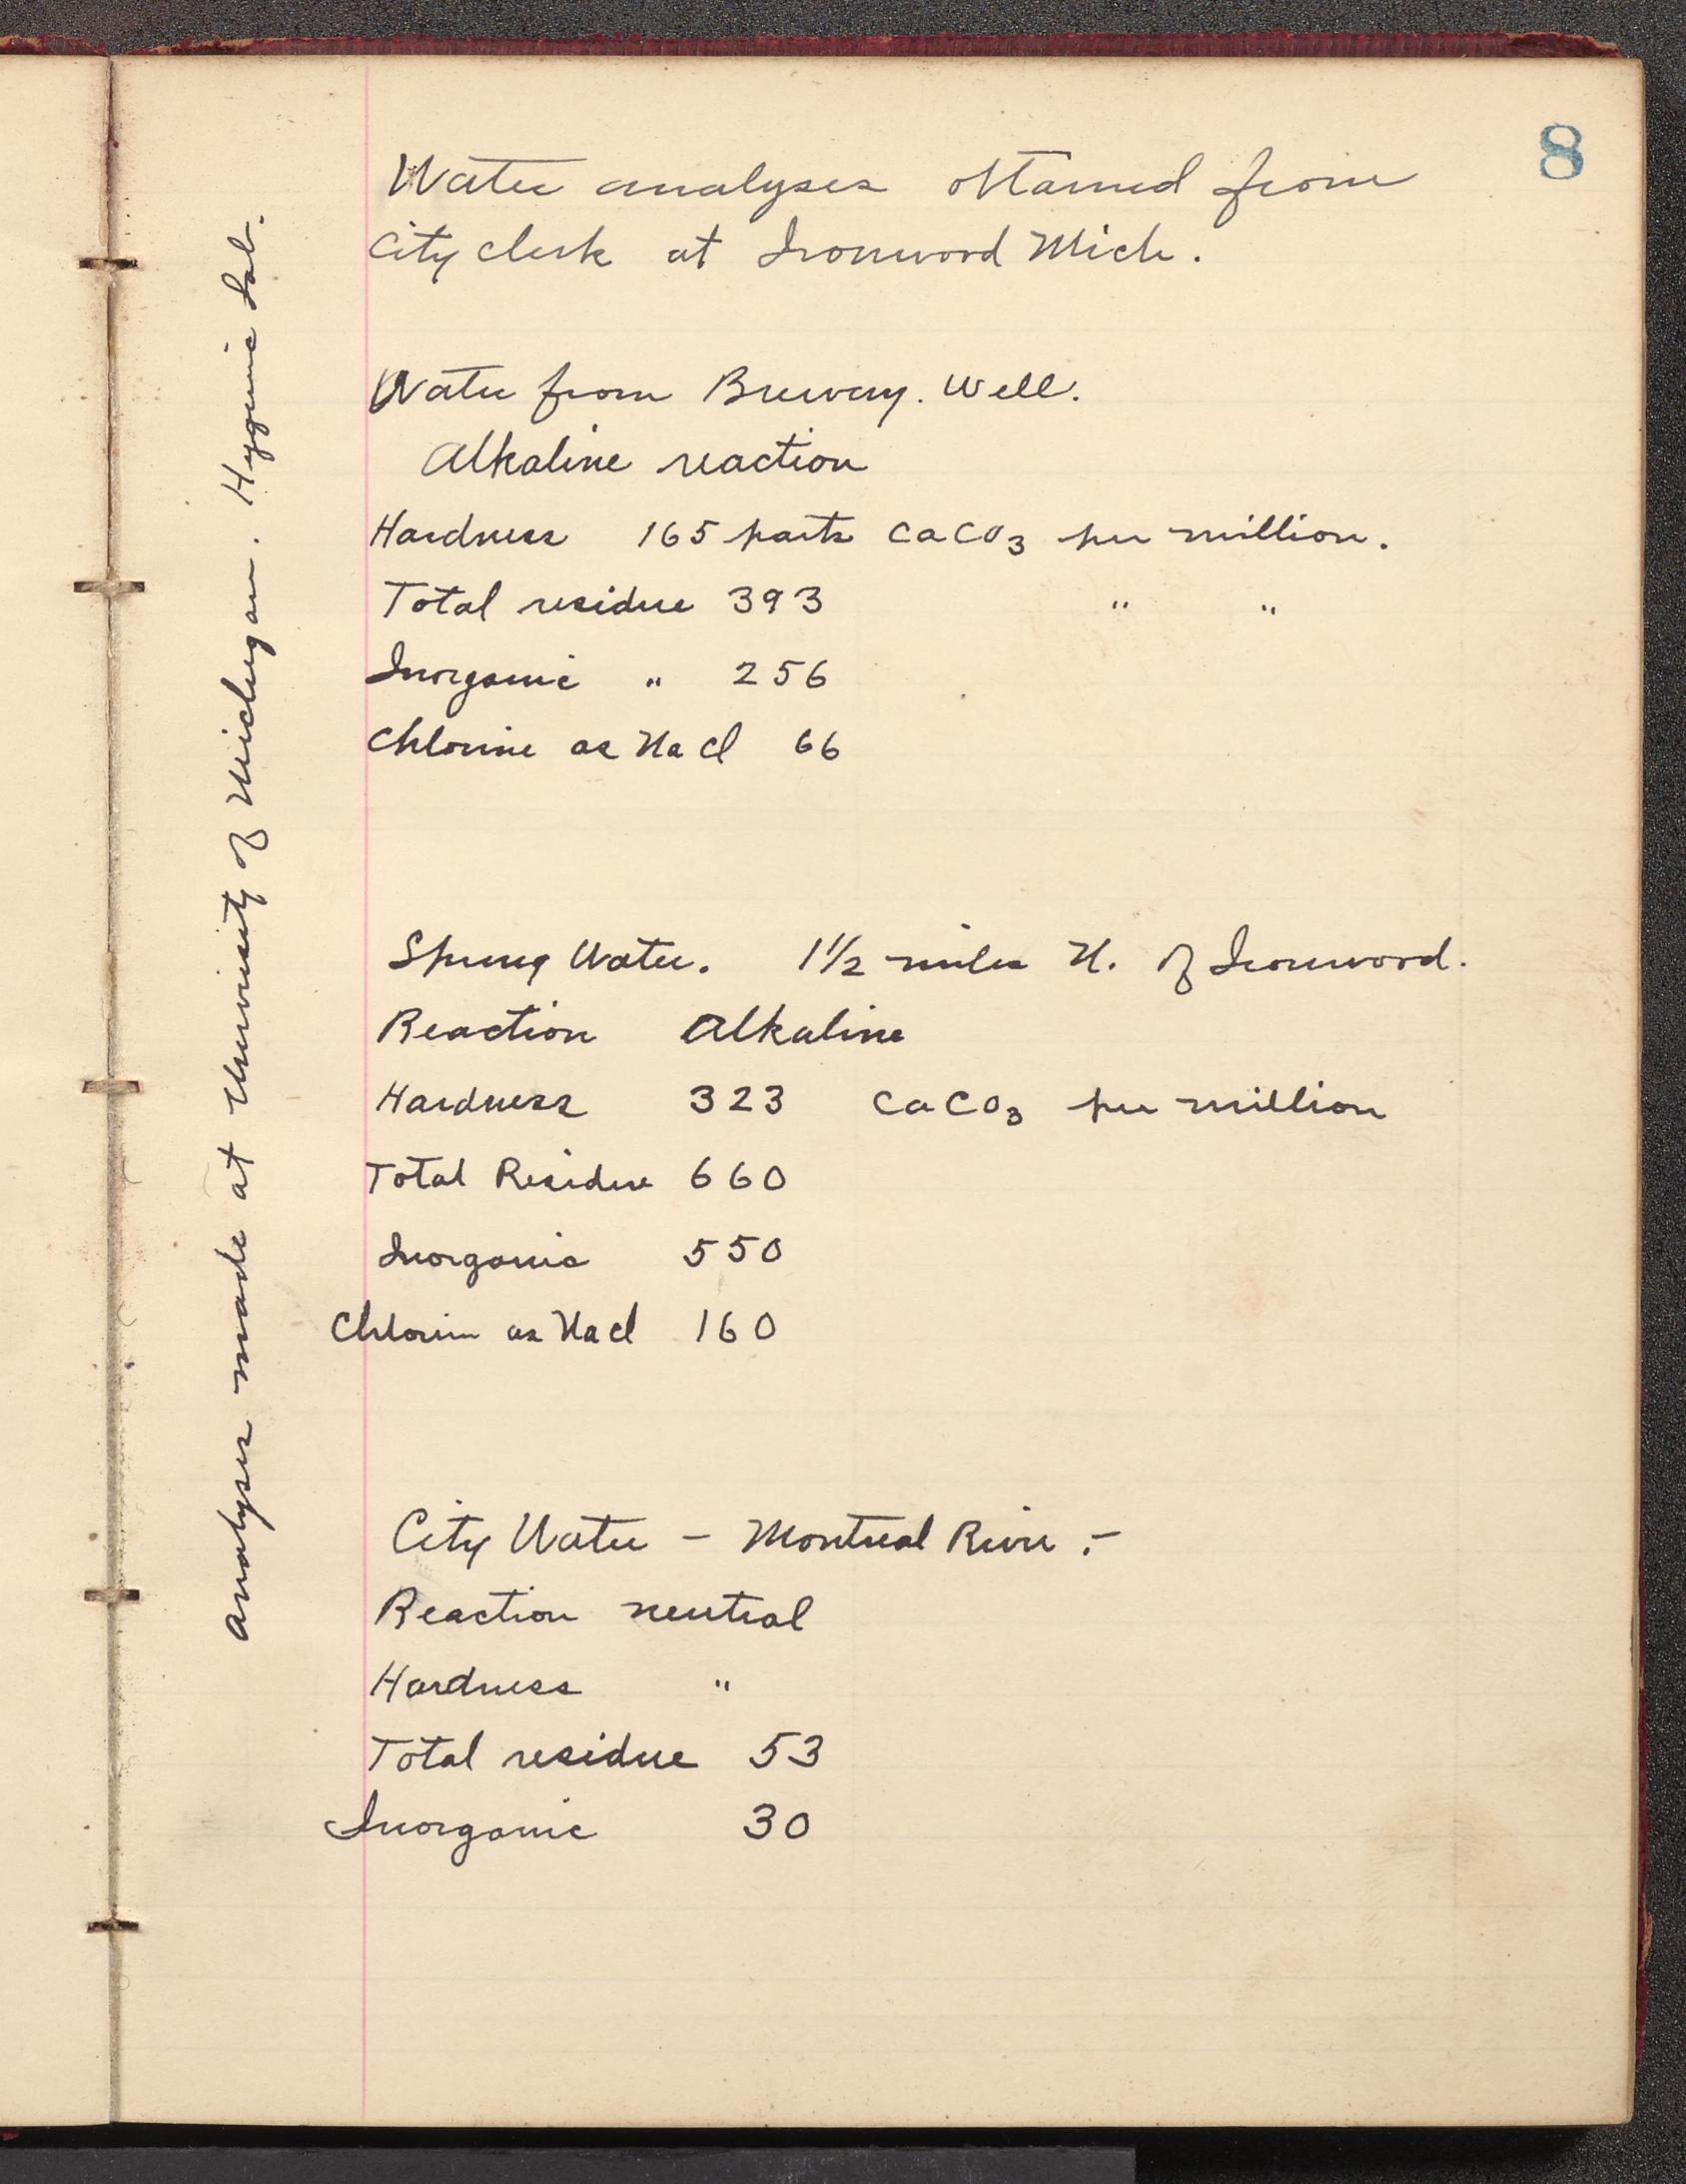 8
Water analyses obtained from
City clerk at Ironwood Mich.
Water from Brewery. Well.
Alkaline reaction
Hardness 165 parts CaCO₃ per million.
Total residue 393 " "
Inorganic " 256
Chlorine as NaCl 66
Spring Water. 1½ miles N. of Ironwood.
Reaction Alkaline
Hardness 323 CaCO₃ per million
Total Residue 660
Inorganic 550
Chlorine as NaCl 160
City Water - Montreal River.-
Reaction neutral
Hardness "
Total residue 53
Inorganic 30
Analyses made at University of Michigan. Hygenic Lab.